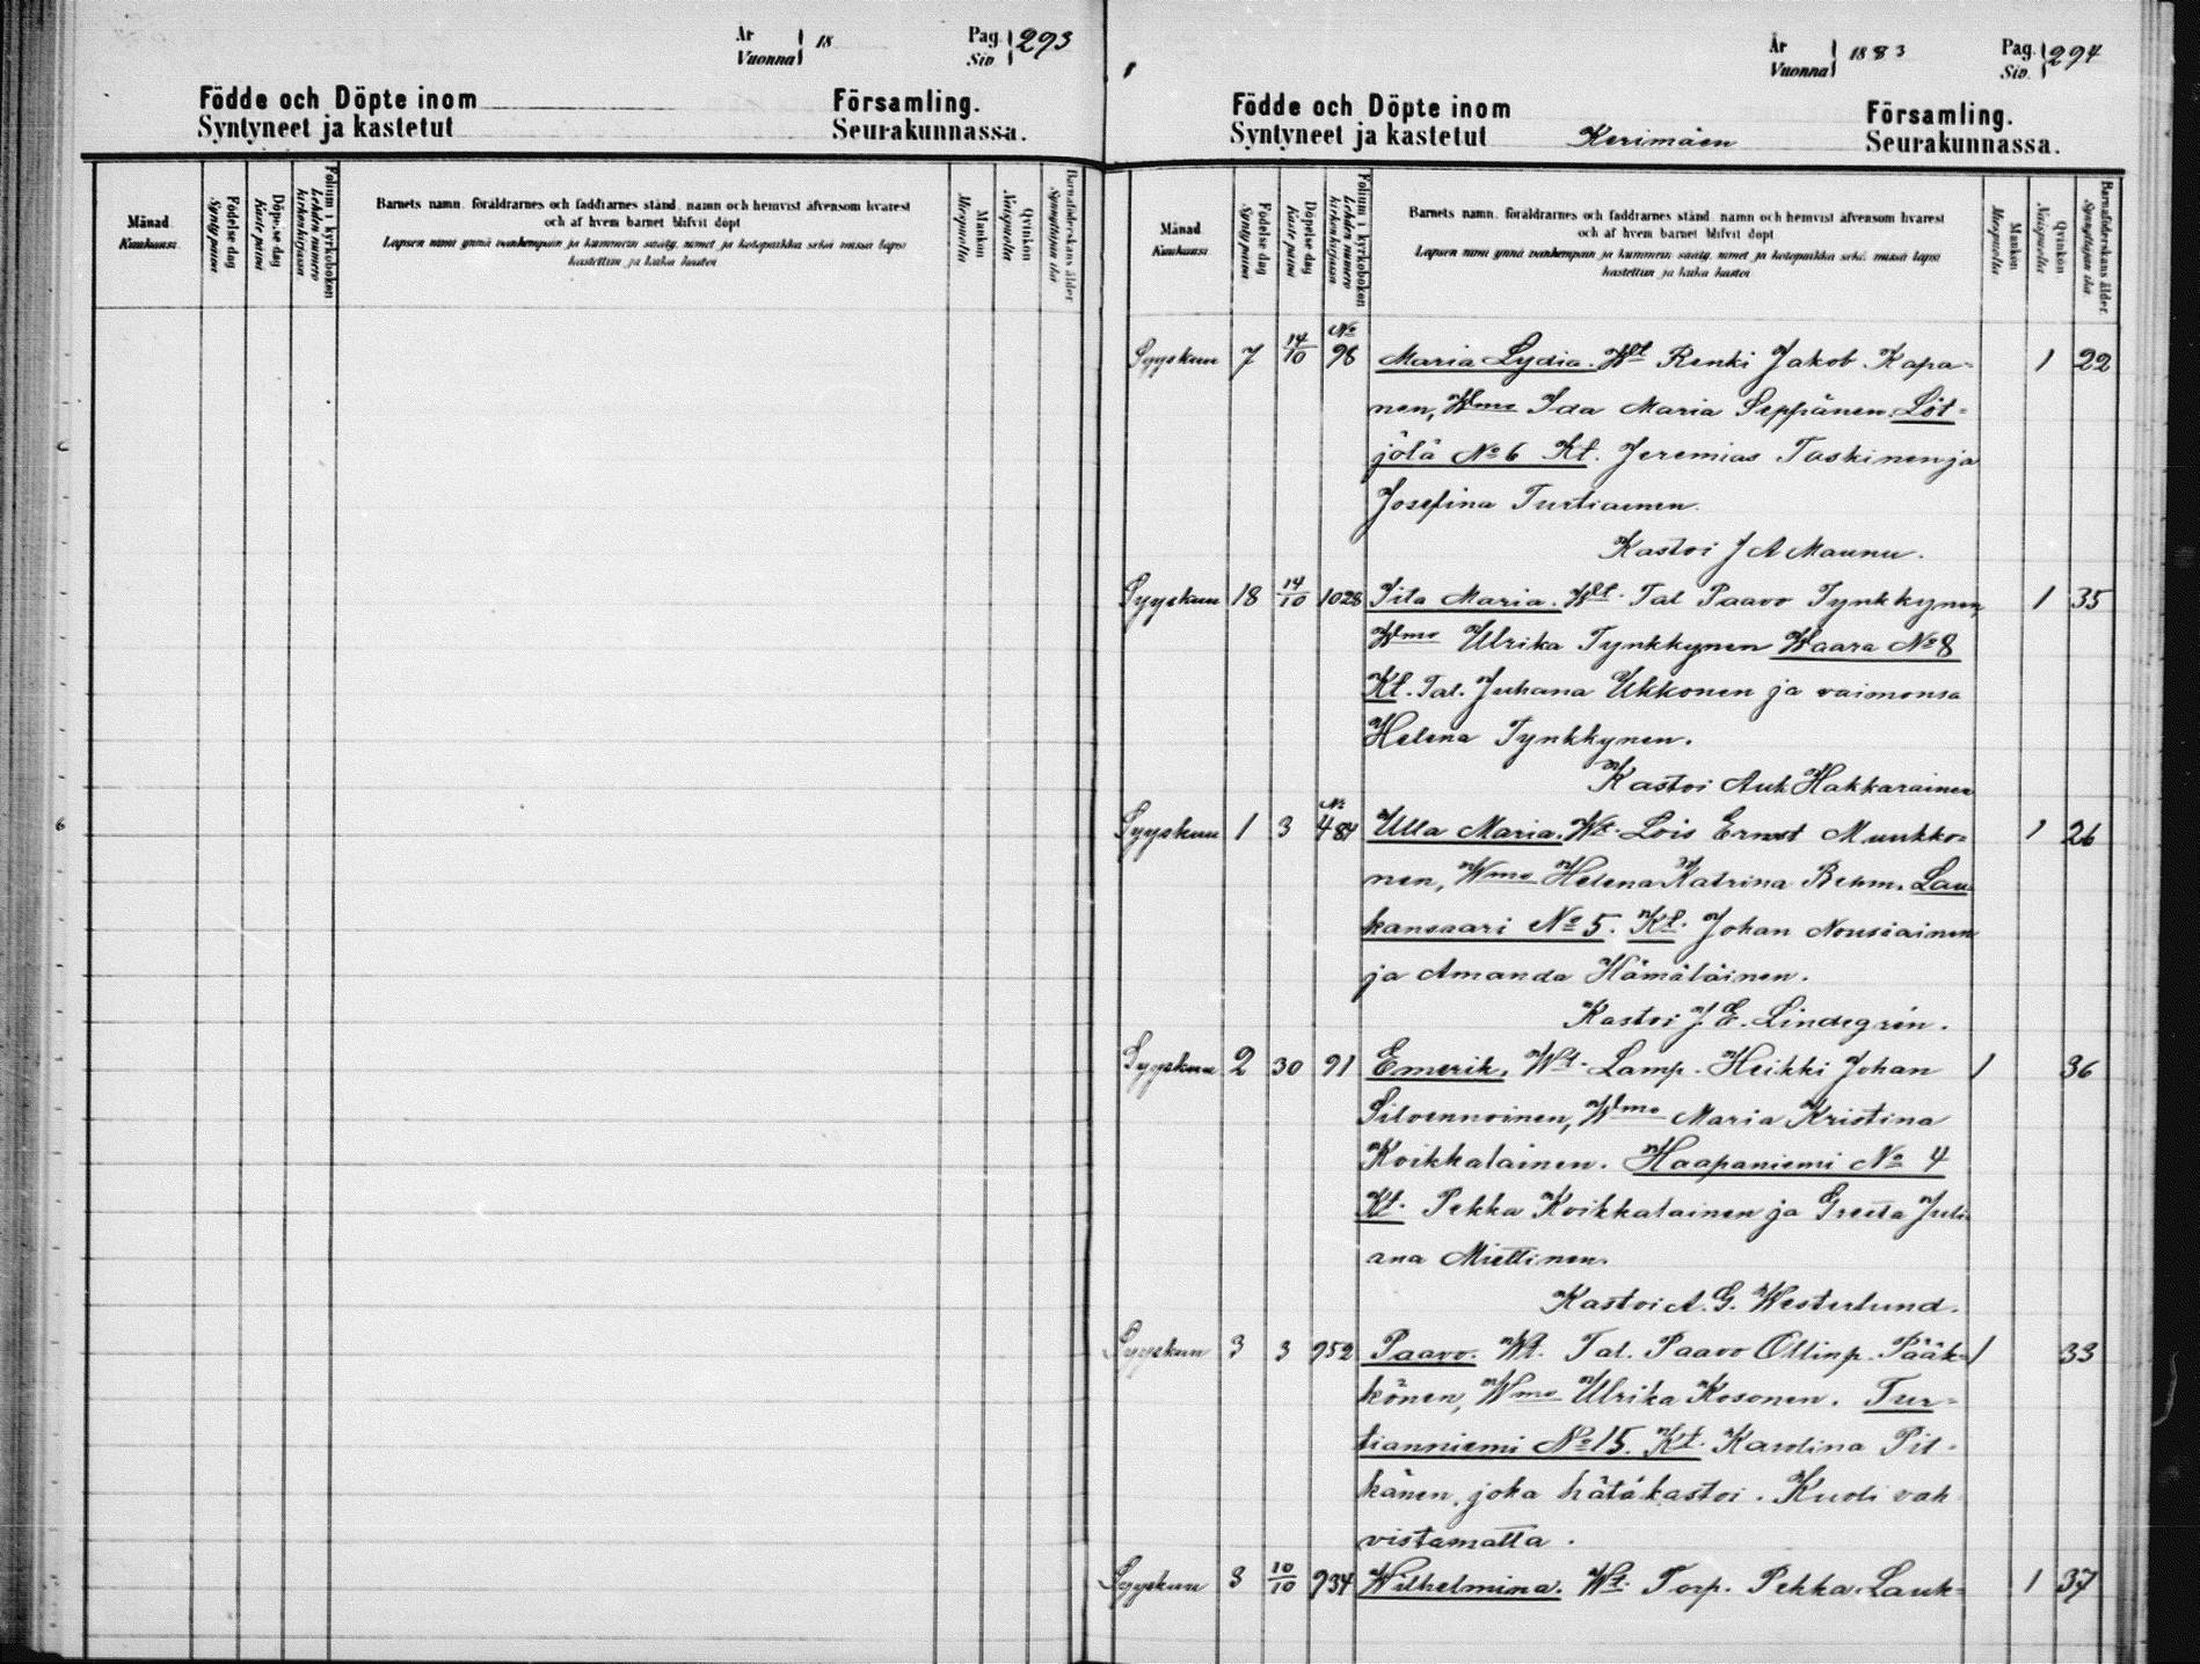 År
Vuonna 18
Pag.
Siv. 293
Födde och Döpte inom Församling.
Syntyneet ja kastetut Seurakunnassa.
Månad
Kuukausi
Födelse dag
Synty päivä
Döpelse dag
Kaste päivä
Folium i kyrkoboken
Lehden numero
kirkonkirjassa
Barnets namn, föräldrarnes och faddrarnes stånd, namn och hemvist äfvensom hvarest
och af hvem barnet blifvit döpt
Lapsen nimi ynnä vanhempain ja kummein sääty, nimet ja kotopaikka sekä missä lapsi
kastettiin ja kuka kastoi
Mankön
Miespuolia
Qvinkön
Naispuolia
Barnaföderskans ålder
Synnyttäjän ikä
År
Vuonna 1883
Pag.
Siv. 294
Födde och Döpte inom Församling.
Syntyneet ja kastetut Kerimäen Seurakunnassa.
Månad
Kuukausi
Födelse dag
Synty päivä
Döpelse dag
Kaste päivä
Folium i kyrkoboken
Lehden numero
kirkonkirjassa
Barnets namn, föräldrarnes och faddrarnes stånd, namn och hemvist äfvensom hvarest
och af hvem barnet blifvit döpt
Lapsen nimi ynnä vanhempain ja kummein sääty, nimet ja kotopaikka sekä missä lapsi
kastettiin ja kuka kastoi
Mankön
Miespuolia
Qvinkön
Naispuolia
Barnaföderskans ålder.
Synnyttäjän ikä
Syyskuu 7 14/10 No 98 Maria Lydia. Wt Renki Jakob Kapa- 1 22
nen, Wmo Ida Maria Seppänen. Löt-
jölä No 6 Kt. Jeremias Taskinen ja
Josefina Turtiainen.
Kastoi J A Maunu.
Syyskuu 18 14/10 1028 Iita Maria. Wt. Tal Paavo Tynkkynen, 1 35
Wmo Ulrika Tynkkynen Waara No 8
Kt. Tal. Juhana Ukkonen ja vaimonsa
Helena Tynkkynen.
Kastoi Auk Hakkarainen
Syyskuu 1 3 No 484 Ulla Maria. Wt. Lois Ernst Muukko- 1 26
nen, Wmo Helena Katrina Behm. Lau
kansaari No 5. Kt. Johan Nousiainen
ja Amanda Hämäläinen.
Kastoi J. E. Lindegrén.
Syyskuu 2 30 91 Emerik. Wt. Lamp. Heikki Johan 1 36
Silvennoinen, Wmo Maria Kristina
Koikkalainen. Haapaniemi No 4
Kt. Pekka Koikkalainen ja Greeta Juli
ana Miettinen.
Kastoi A. G. Westerlund.
Syyskuu 3 3 952 Paavo. Wt. Tal. Paavo Ollinp. Pääk- 1 33
könen, Wmo Ulrika Kosonen. Tur-
tianniemi No 15. Kt. Karolina Pit-
känen, joka hätäkastoi. Kuoli vah
vistamatta.
Syyskuu 3 10/10 934 Wilhelmina. Wt. Torp. Pekka Lauk- 1 37